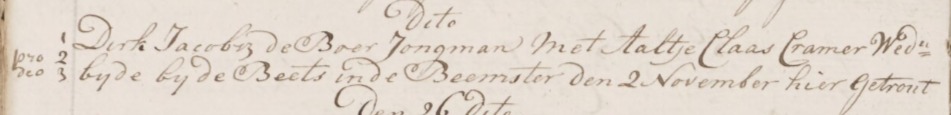 Dito
1 Dirk Jacobsz de Boer Jongman Met Aaltje Claas Cramer Wedu=
pro 2
deo 3 byde by de Beets in de Beemster den 2 November hier getrout
Den 26 dito